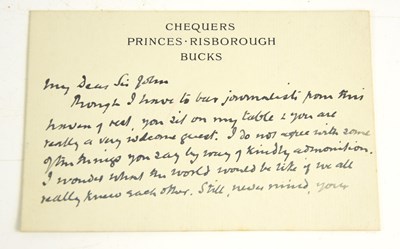 CHEQUERS
PRINCES·RISBOROUGH
BUCKS
My Dear Sir John
Though I have to bar journalists from this
haven of rest, you sit on my table & you are
really a very welcome guest. I do not agree with some
of the things you say by way of kindly admonition.
I wonder what the world would be like if we all
really knew each other. Still, never mind, your